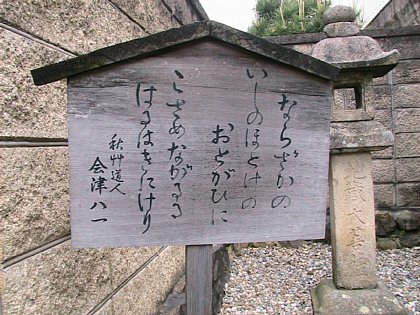 ならざかの
いしのほとけの
おとがひに
こさめながるる
はるはきにけり
秋艸道人
会津八一
地蔵大菩薩